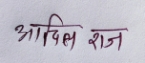 आदिल राज